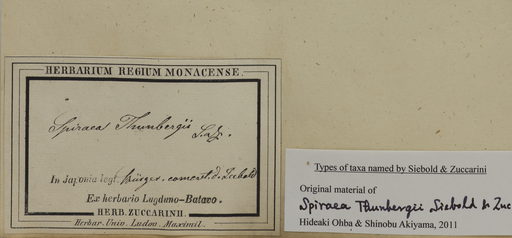 HERBARIUM REGIUM MONACENSE.
Spiraea Thunbergii S. & Z.
In japonia legt. Bürger. comerst. d. Siebold
Ex herbario Lugduno-Batavo.
HERB. ZUCCARINII.
Herbar. Univ. Ludov. Maximil.
Types of taxa named by Siebold & Zuccarini
Original material of
Spiraea Thunbergii Siebold & Zuc
Hideaki Ohba & Shinobu Akiyama, 2011